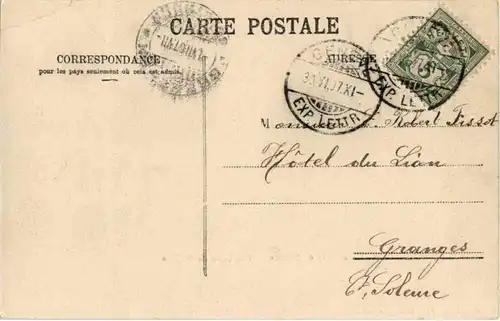 CARTE POSTALE
CORRESPONDANCE
pour les pays seulement où cela est admis.
GENÈ
30.VI.07.XI-
EXP. LETTR.
5
EXP. LETTR
Robert Fisset
Hôtel du Lion
Granges
Ct. Soleure